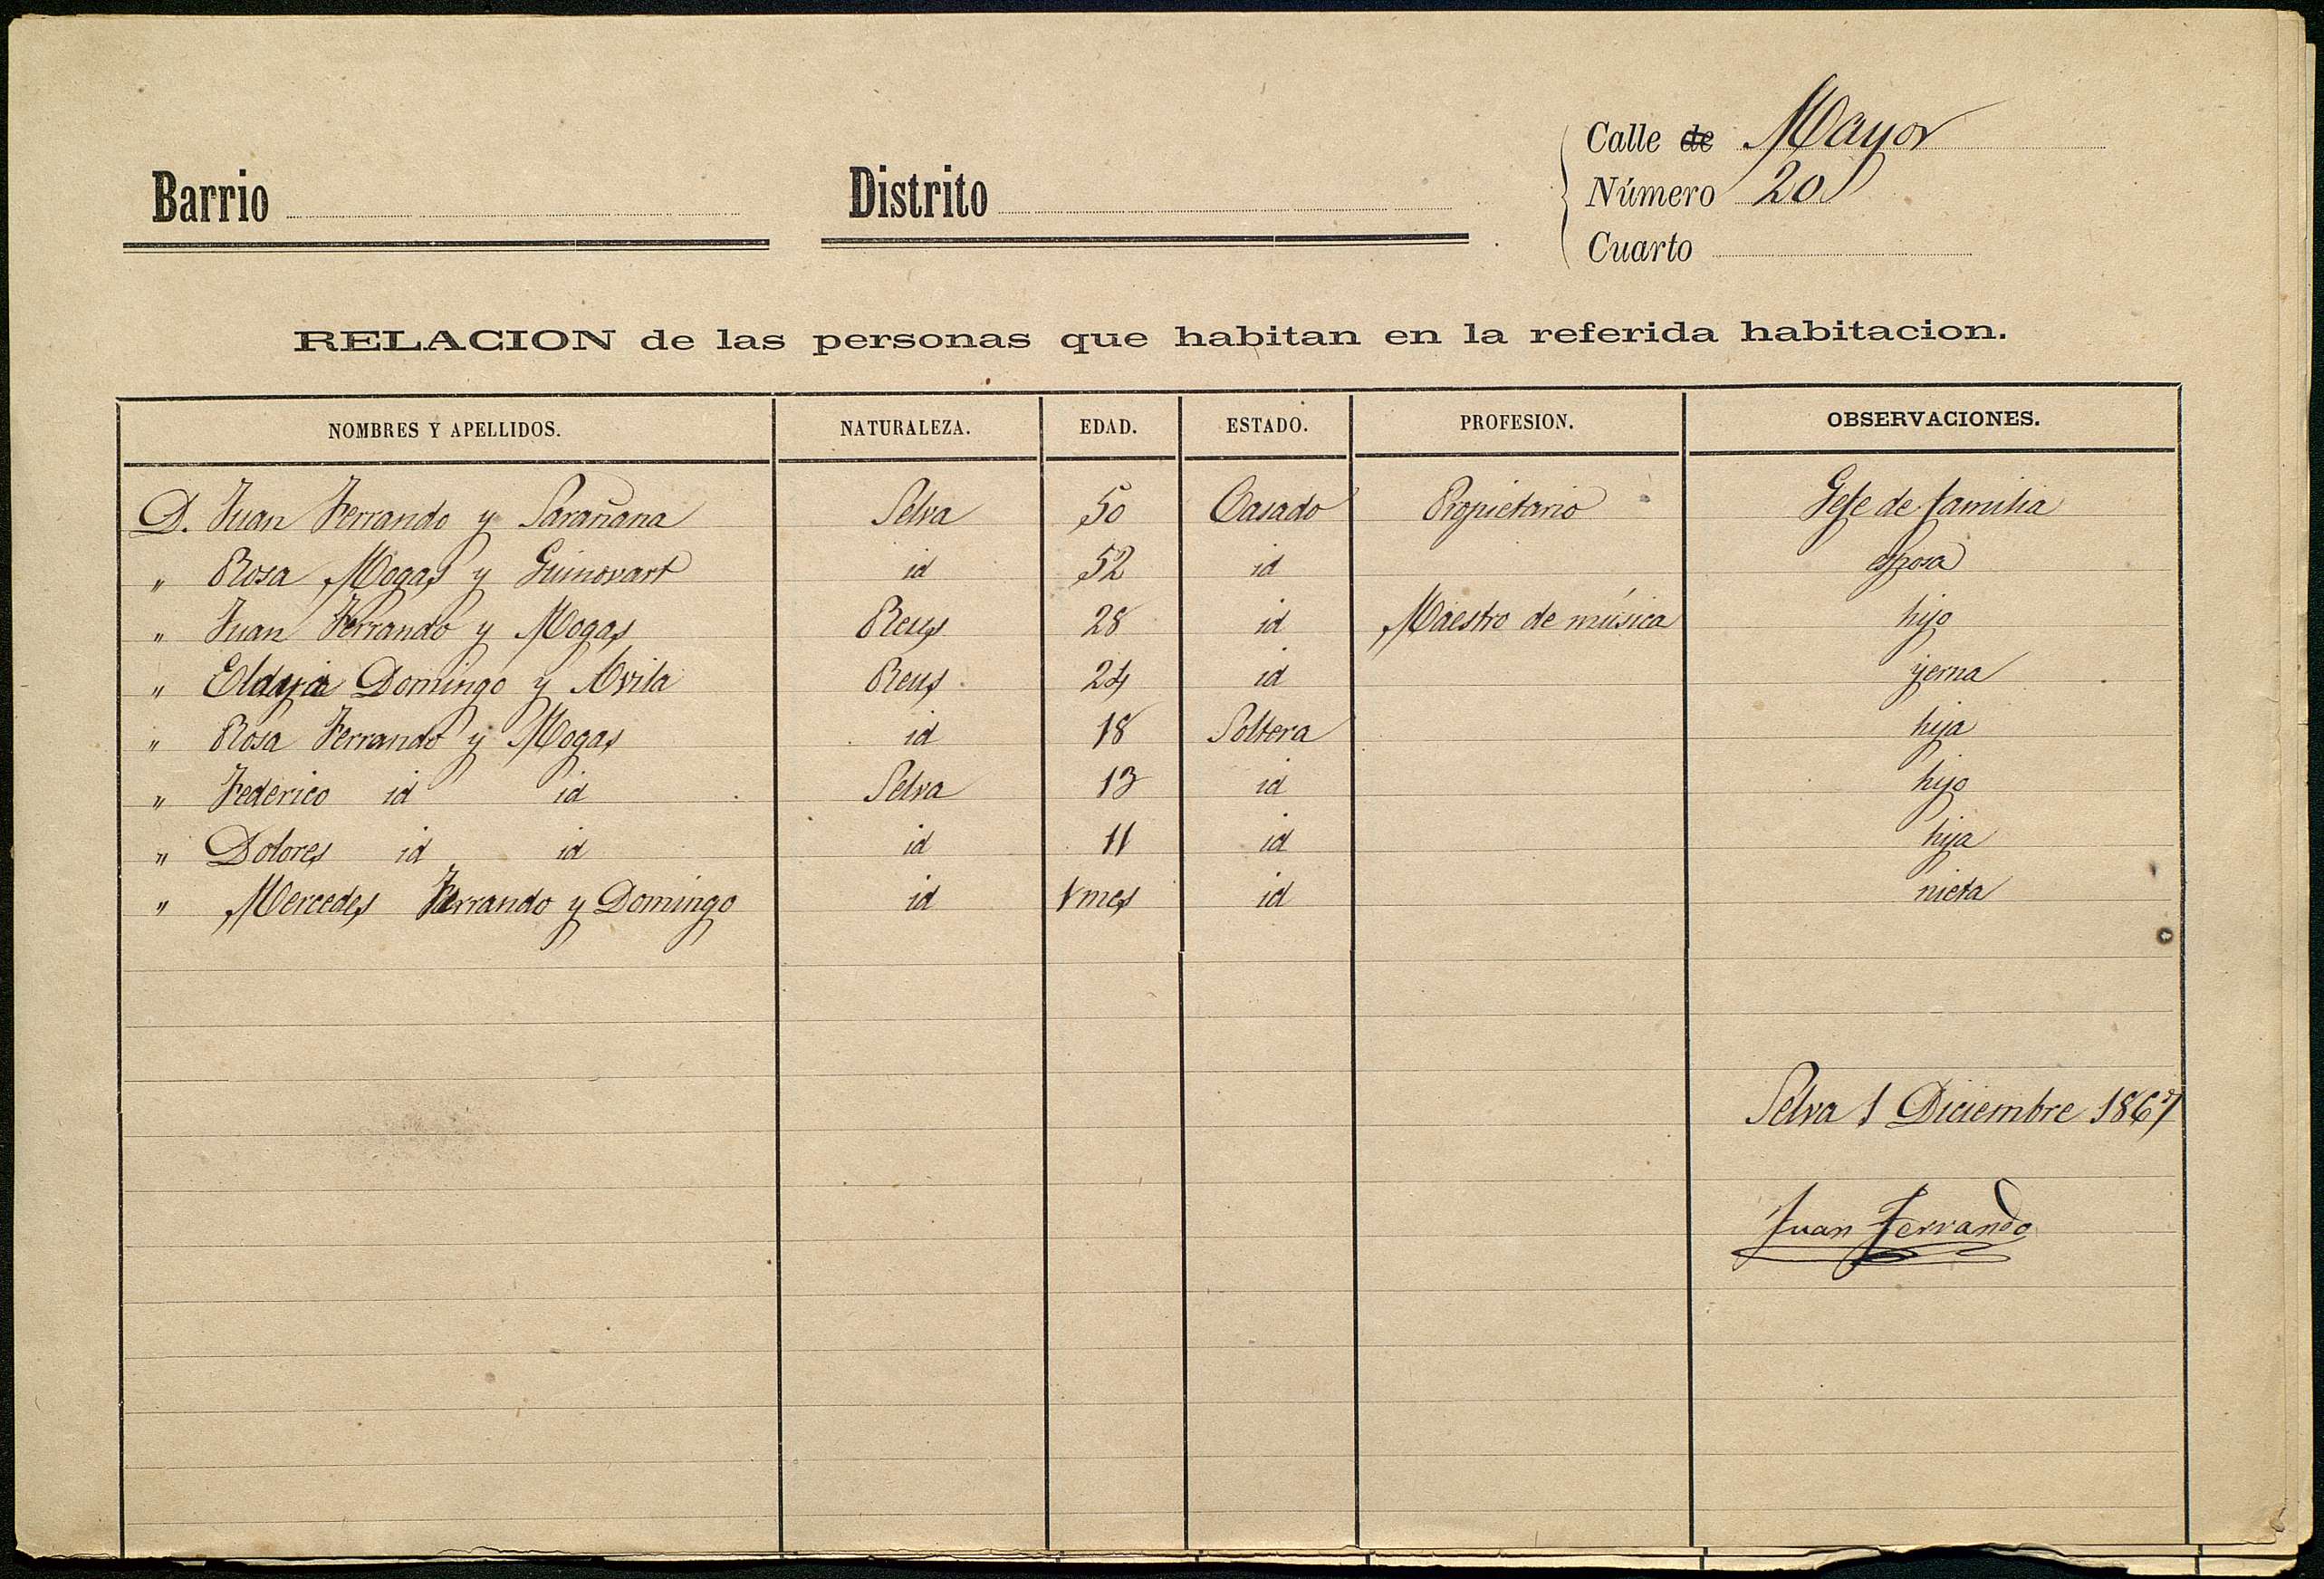 Calle de Mayor
Barrio Distrito Número 20
Cuarto
RELACION de las personas que habitan en la referida habitacion.
NOMBRES Y APELLIDOS. NATURALEZA. EDAD. ESTADO. PROFESION. OBSERVACIONES.
D. Juan Ferrando y Sarañana Selva 50 Casado Propietario Gefe de familia
" Rosa Mogas y Guinovart id 52 id esposa
" Juan Ferrando y Mogas Reus 28 id Maestro de música hijo
" Domingo y Avila Reus 24 id yerna
" Rosa Ferrando y Mogas id 18 Soltera hija
" Federico id id Selva 13 id hijo
" Dolores id id id 11 id hija
" Mercedes Ferrando y Domingo id 1 mes id nieta
Selva 1 Diciembre 1867
Juan Ferrando